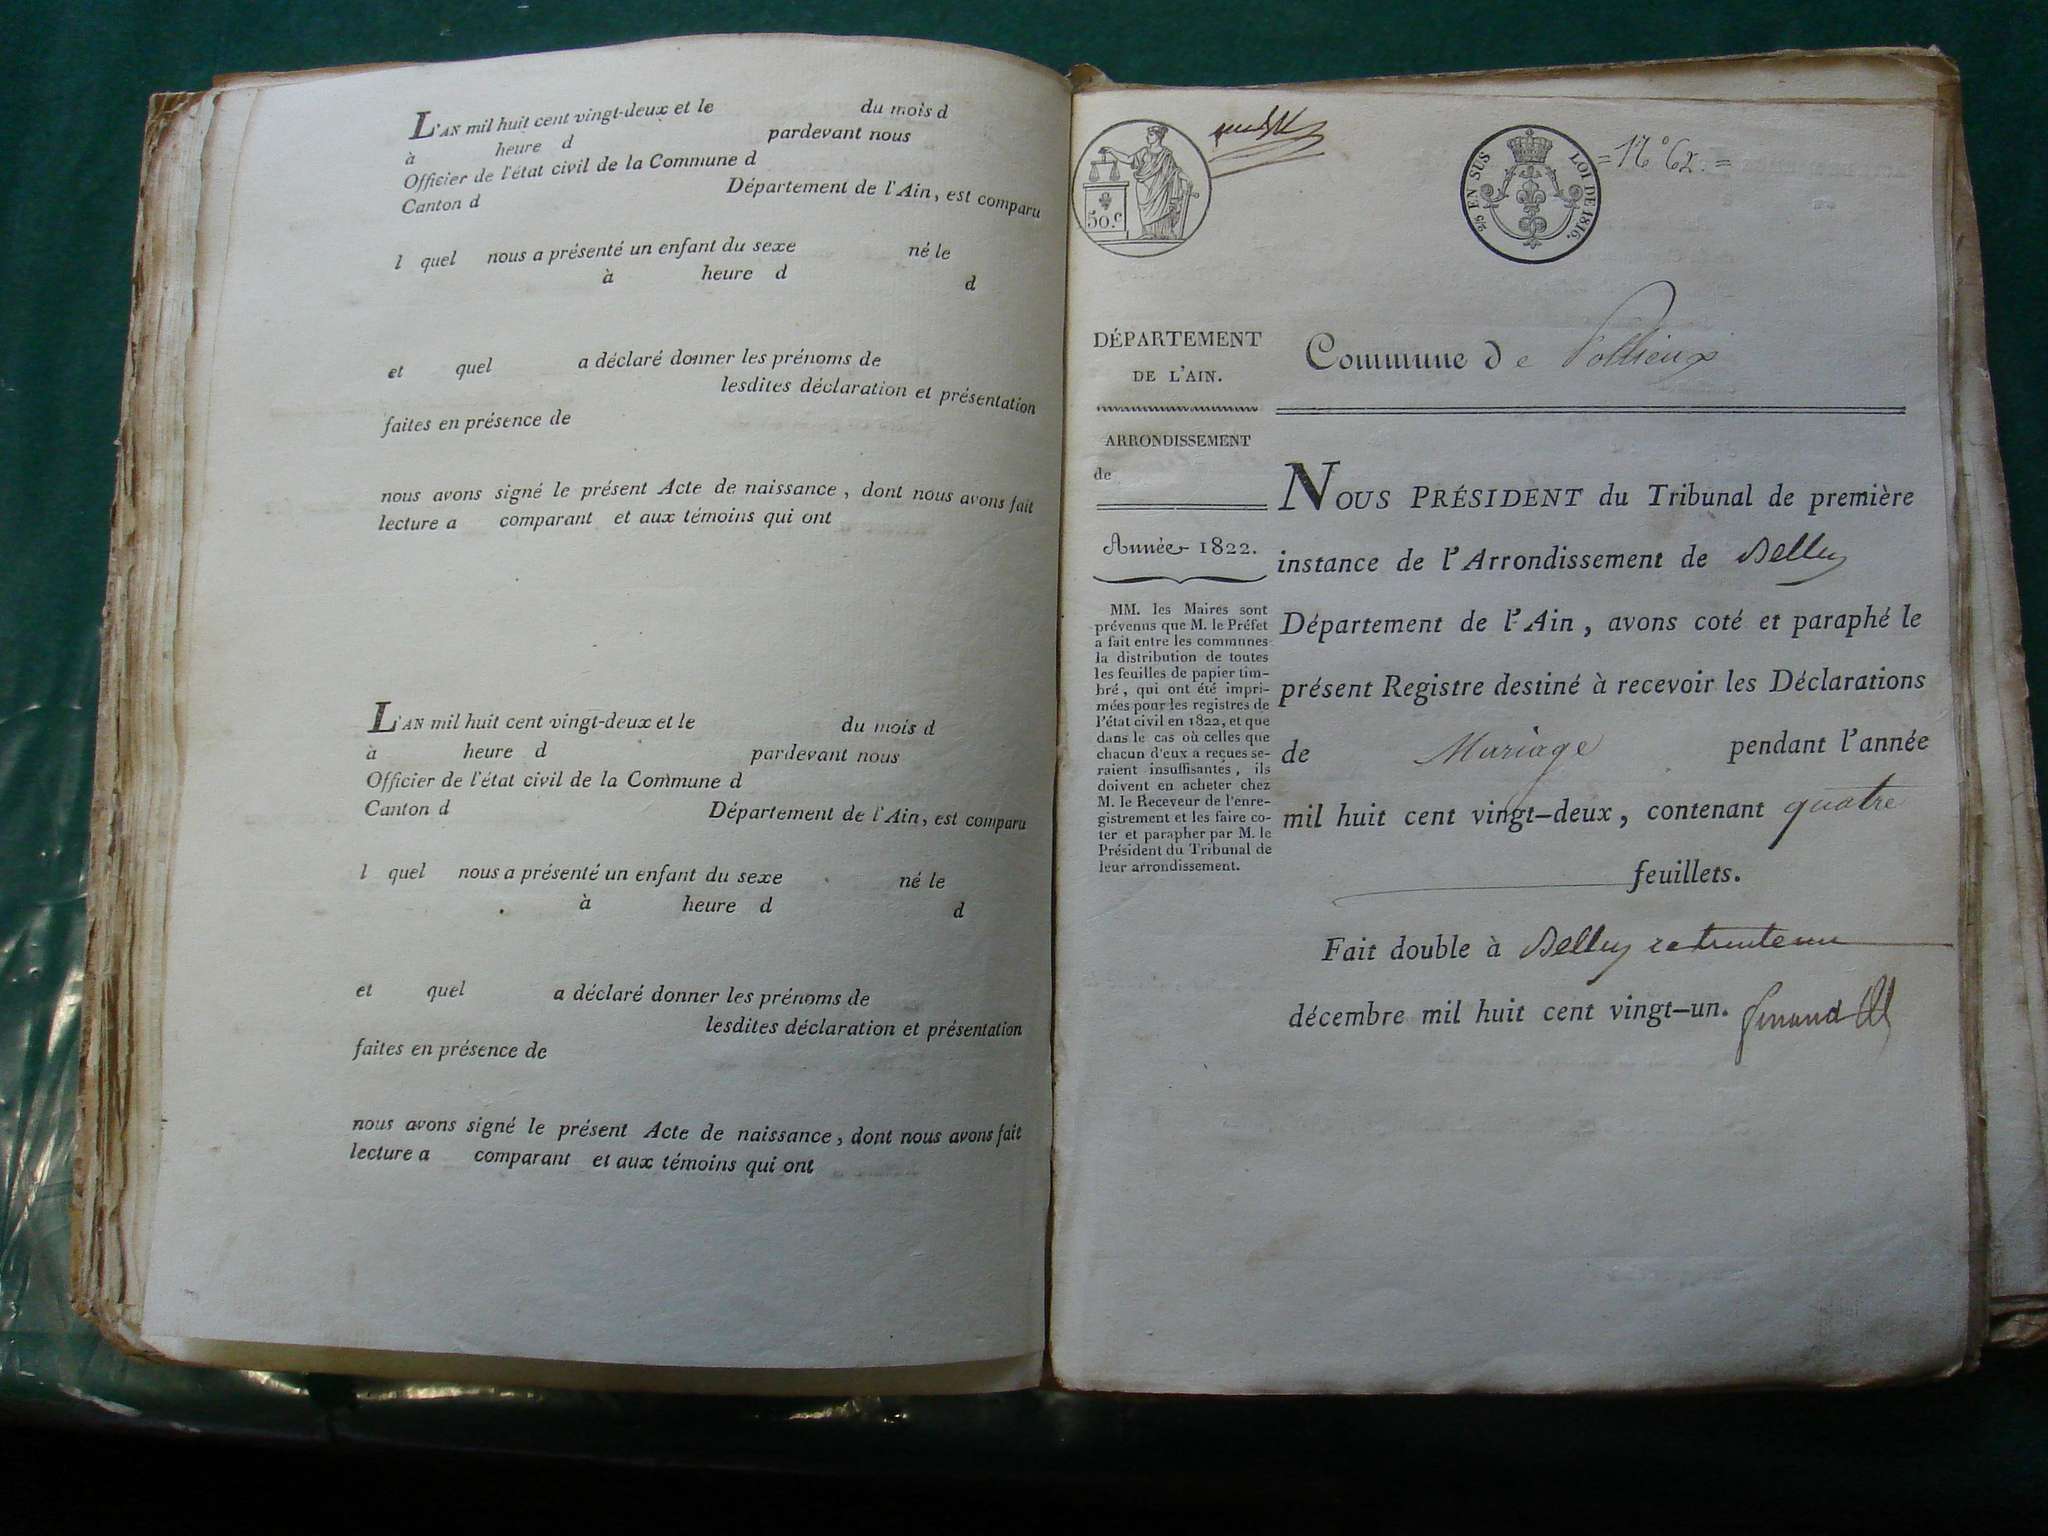 L'AN mil huit cent vingt-deux et le du mois d
à heure d pardevant nous
Officier de l'état civil de la Commune d
Canton d Département de l'Ain, est comparu
l quel nous a présenté un enfant du sexe né le
à heure d d
et quel a déclaré donner les prénoms de
lesdites déclaration et présentation
faites en présence de
nous avons signé le présent Acte de naissance, dont nous avons fait
lecture a comparant et aux témoins qui ont
L'AN mil huit cent vingt-deux et le du mois d
à heure d pardevant nous
Officier de l'état civil de la Commune d
Canton d Département de l'Ain, est comparu
l quel nous a présenté un enfant du sexe né le
à heure d d
et quel a déclaré donner les prénoms de
lesdites déclaration et présentation
faites en présence de
nous avons signé le présent Acte de naissance, dont nous avons fait
lecture a comparant et aux témoins qui ont
50.c
2/5 EN SUS LOI DE 1816.
DÉPARTEMENT
DE L'AIN.
ARRONDISSEMENT
de
Année 1822.
MM. les Maires sont
prévenus que M. le Préfet
a fait entre les communes
la distribution de toutes
les feuilles de papier tim-
bré, qui ont été impri-
mées pour les registres de
l'état civil en 1822, et que
dans le cas où celles que
chacun d'eux a reçues se-
raient insuffisantes, ils
doivent en acheter chez
M. le Receveur de l'enre-
gistrement et les faire co-
ter et parapher par M. le
Président du Tribunal de
leur arrondissement.
Commune de Pollieux
NOUS PRÉSIDENT du Tribunal de première
instance de l'Arrondissement de Belley
Département de l'Ain, avons coté et paraphé le
présent Registre destiné à recevoir les Déclarations
de Mariage pendant l'année
mil huit cent vingt-deux, contenant quatre
feuillets.
Fait double à Belley le trente un
décembre mil huit cent vingt-un.